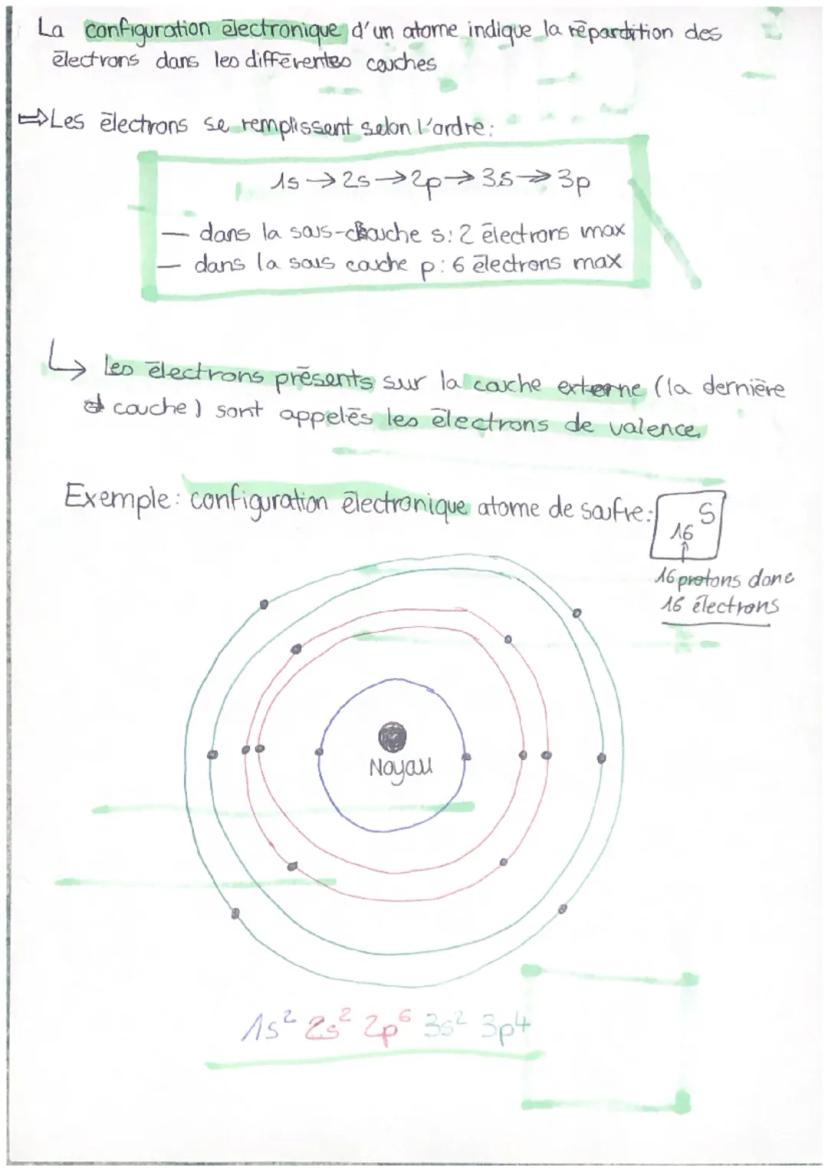 La configuration électronique d'un atome indique la répardition des
électrons dans les différentes couches
⇒ Les électrons se remplissent selon l'ordre:
1s → 2s → 2p → 3s → 3p
— dans la sous-couche s: 2 électrons max
— dans la sous couche p: 6 électrons max
↳ les électrons présents sur la couche externe (la dernière
couche) sont appelés les électrons de valence.
Exemple: configuration électronique atome de soufre:
16 S
↑
16 protons donc
16 électrons
Noyau
1s² 2s² 2p⁶ 3s² 3p⁴